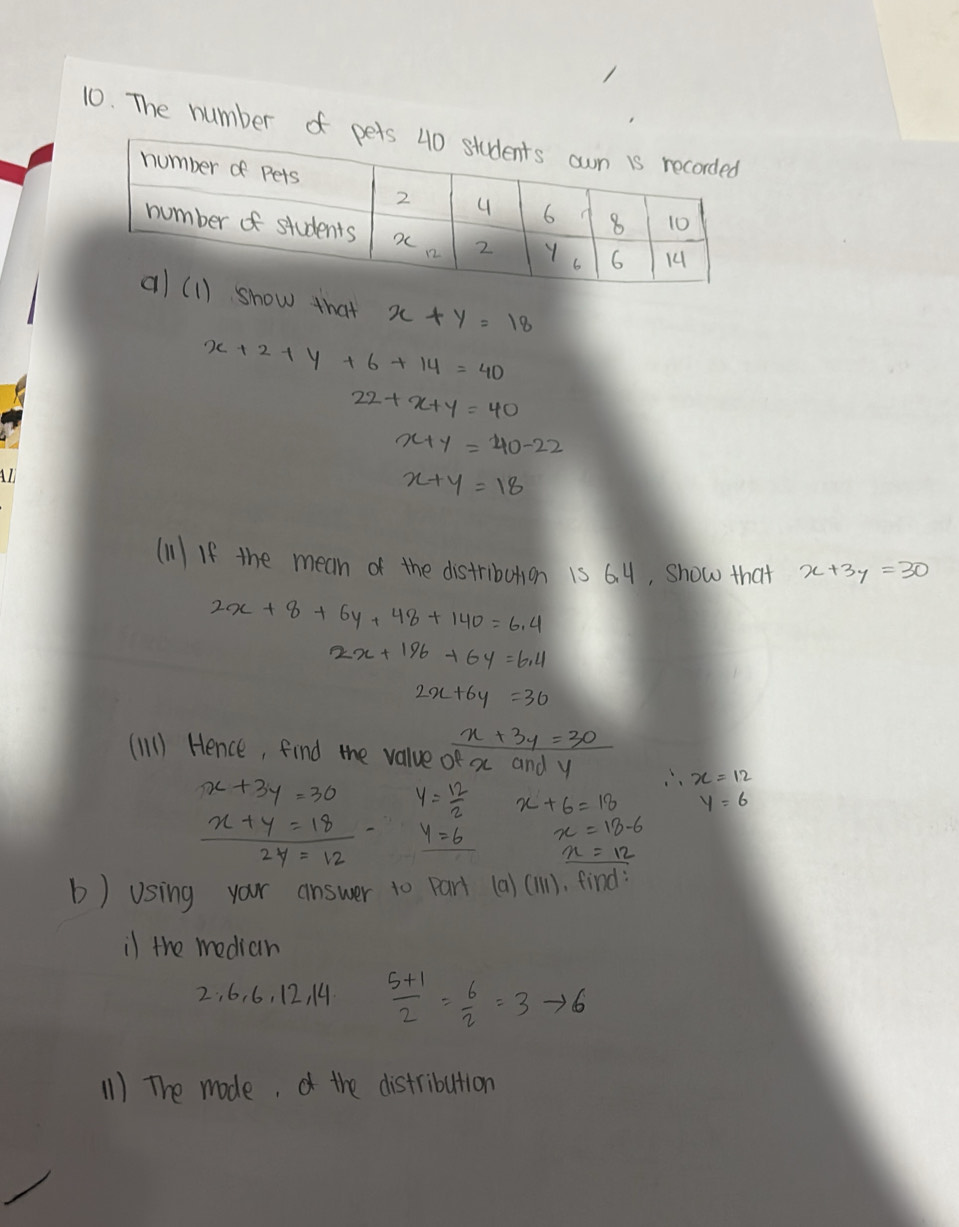 10. The number of pets 40 students own is recorded
number of Pets 2 4 6 8 10
number of students x 12 2 y 6 6 14
a) (i) show that x + y = 18
x + 2 + y + 6 + 14 = 40
22 + x + y = 40
x + y = 40 - 22
x + y = 18
(ii) If the mean of the distribution is 6.4, show that x + 3y = 30
2x + 8 + 6y + 48 + 140 = 6.4
2x + 196 + 6y = 6.4
2x + 6y = 30
x + 3y = 30
(iii) Hence, find the value of x and y
x + 3y = 30 y = 12/2 x + 6 = 18 ∴ x = 12
x + y = 18 - y = 6 x = 18 - 6 y = 6
2y = 12 x = 12
b) Using your answer to part (a) (iii), find:
i) the median
2, 6, 6, 12, 14 5+1/2 = 6/2 = 3 → 6
ii) The mode, of the distribution
All